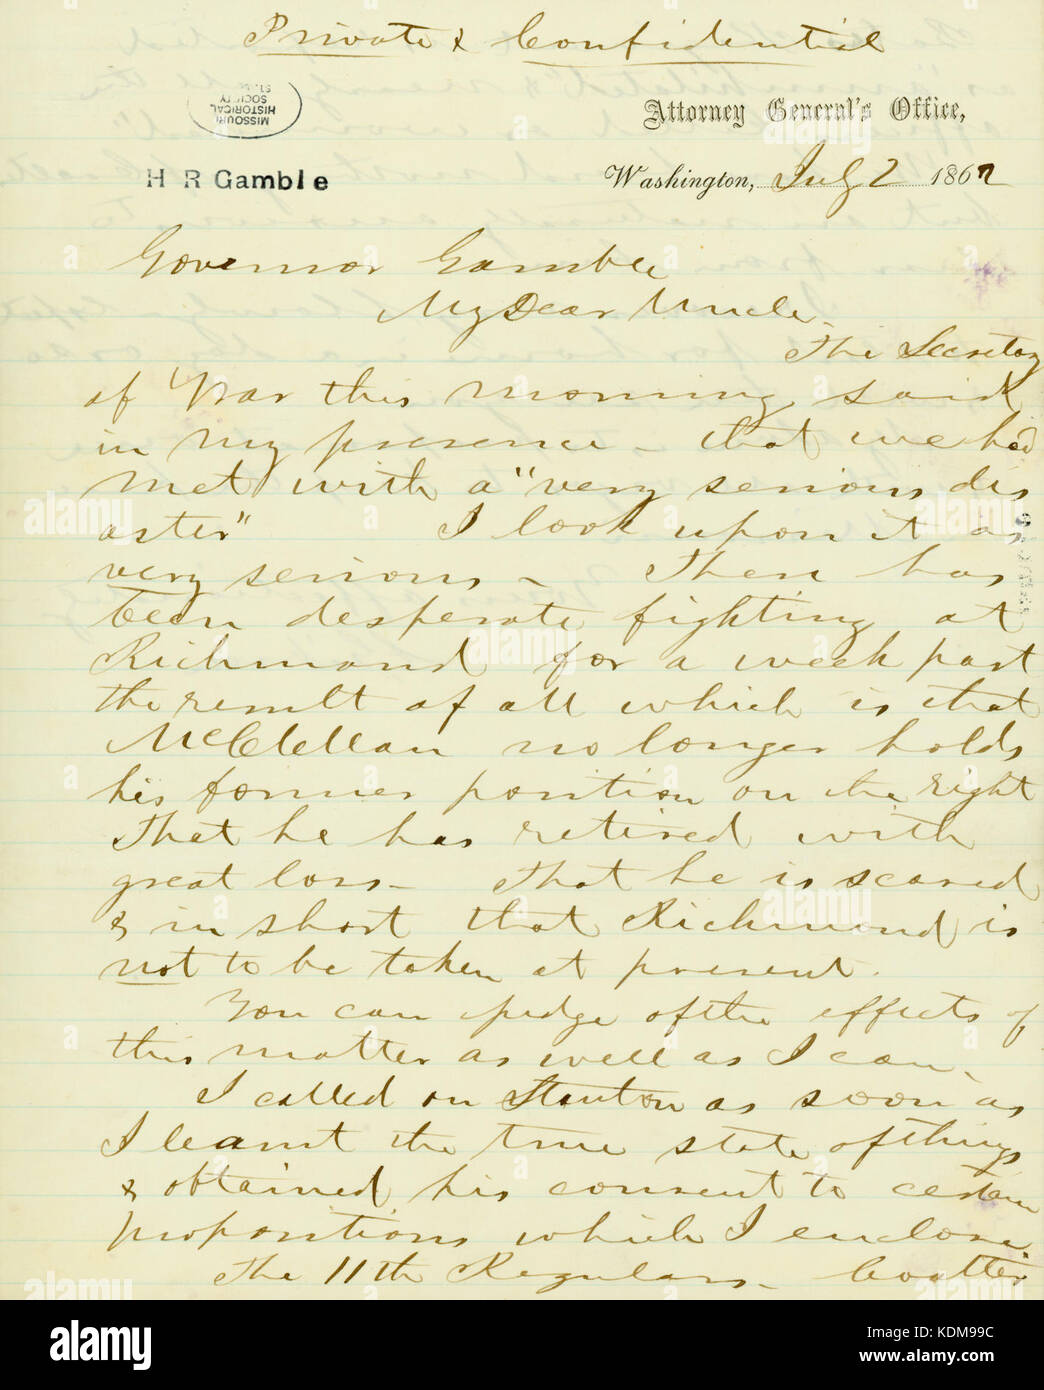 Private & Confidential
MISSOURI
HISTORICAL
SOCIETY
Attorney General's Office,
H R Gamble
Washington, July 2 1862
Governor Gamble
My Dear Uncle
The Secretary
of War this morning said
in my presence – that we had
met with a "very serious dis
aster" I look upon it as
very serious – There has
been desperate fighting at
Richmond for a week past
the result of all which is that
McClellan no longer holds
his former position on the right
That he has retired with
great loss – That he is scared
& in short that Richmond is
not to be taken at present.
You can judge of the effects of
this matter as well as I can.
I called on Stanton as soon as
I learnt the true state of things
& obtained his consent to certain
propositions which I enclose
The 11th Regulars –
alamy
Image ID: KDM99C
www.alamy.com